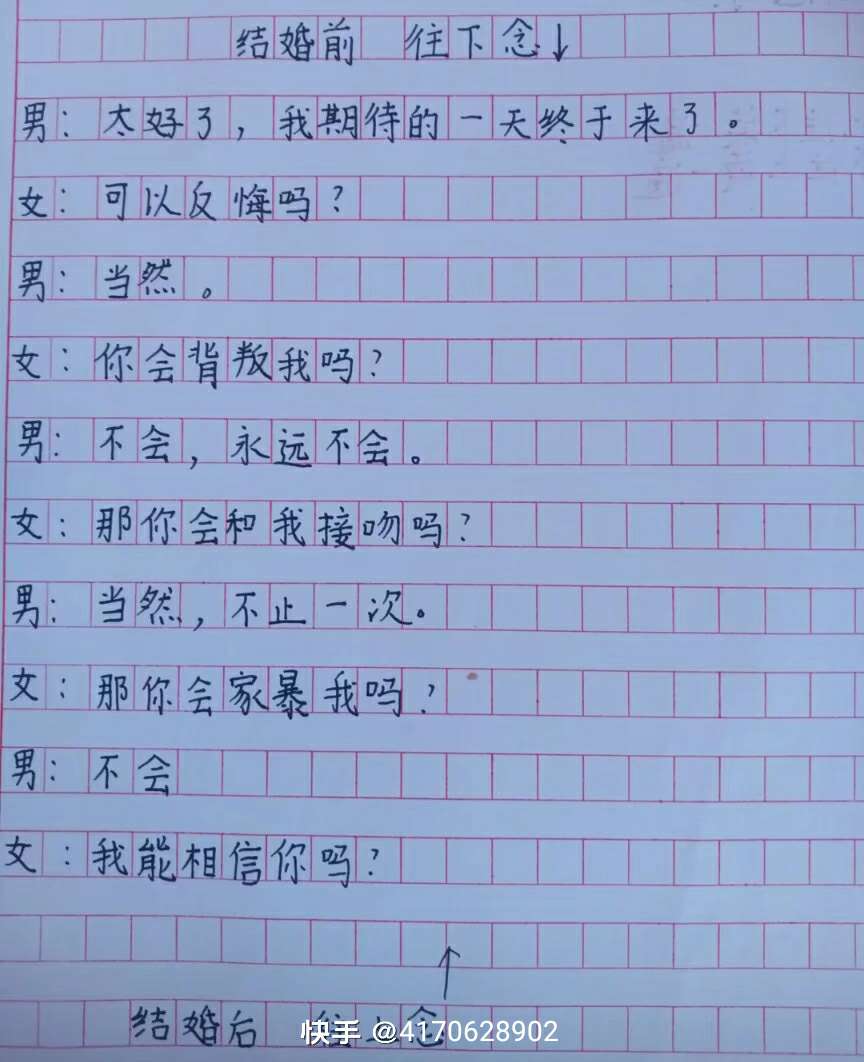 结婚前 往下念↓
男：太好了，我期待的一天终于来了。
女：可以反悔吗？
男：当然。
女：你会背叛我吗？
男：不会，永远不会。
女：那你会和我接吻吗？
男：当然，不止一次。
女：那你会家暴我吗？
男：不会
女：我能相信你吗？
↑
结婚后 往上念
快手 @4170628902